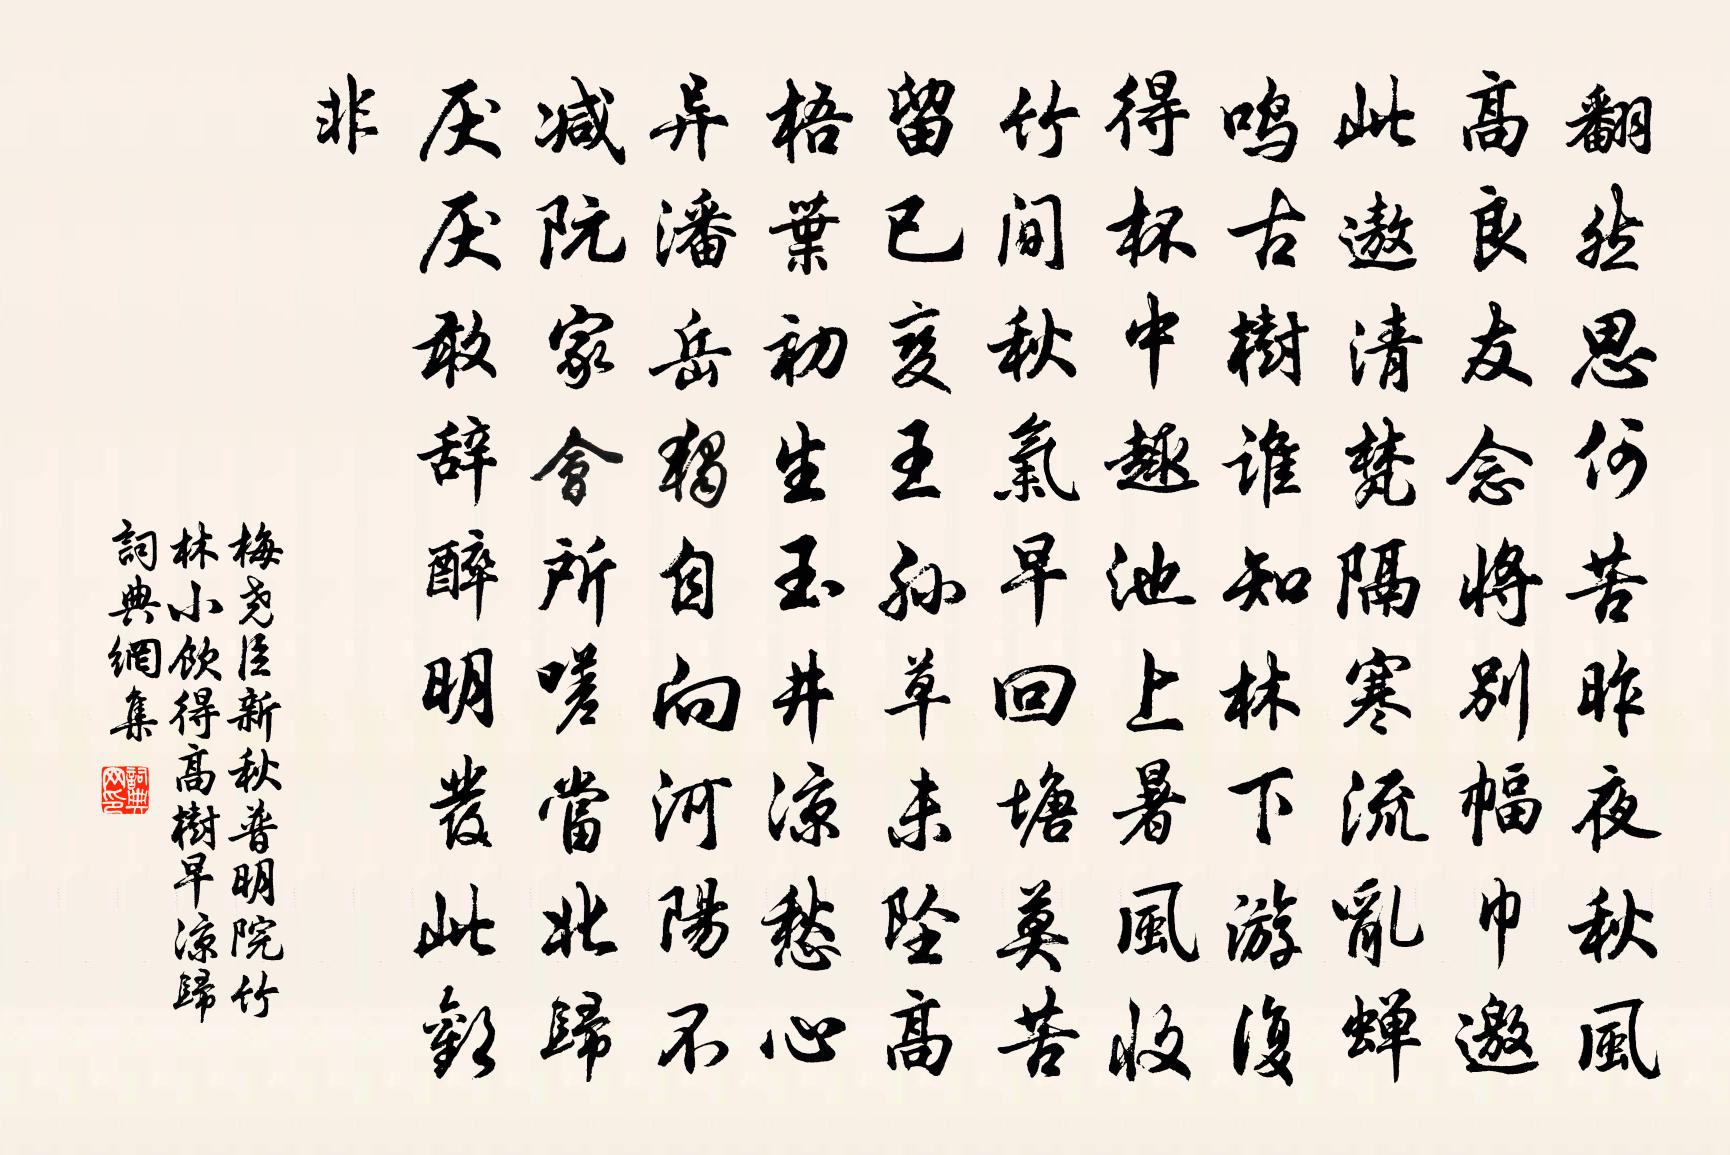 翻然思何苦昨夜秋風
高良友念将别幅巾邀
此遨清梵隔寒流亂蝉
鸣古樹谁知林下游復
得杯中趣池上暑風收
竹间秋氣早回塘莫苦
留已变王孙草未坠高
梧葉初生玉井凉愁心
异潘岳獨自向河陽不
减阮家會所嗟當北歸
厌厌敢辞醉明發此歡
非
梅尧臣新秋普明院竹
林小飲得高樹早凉歸
詞典網集
詞典网印